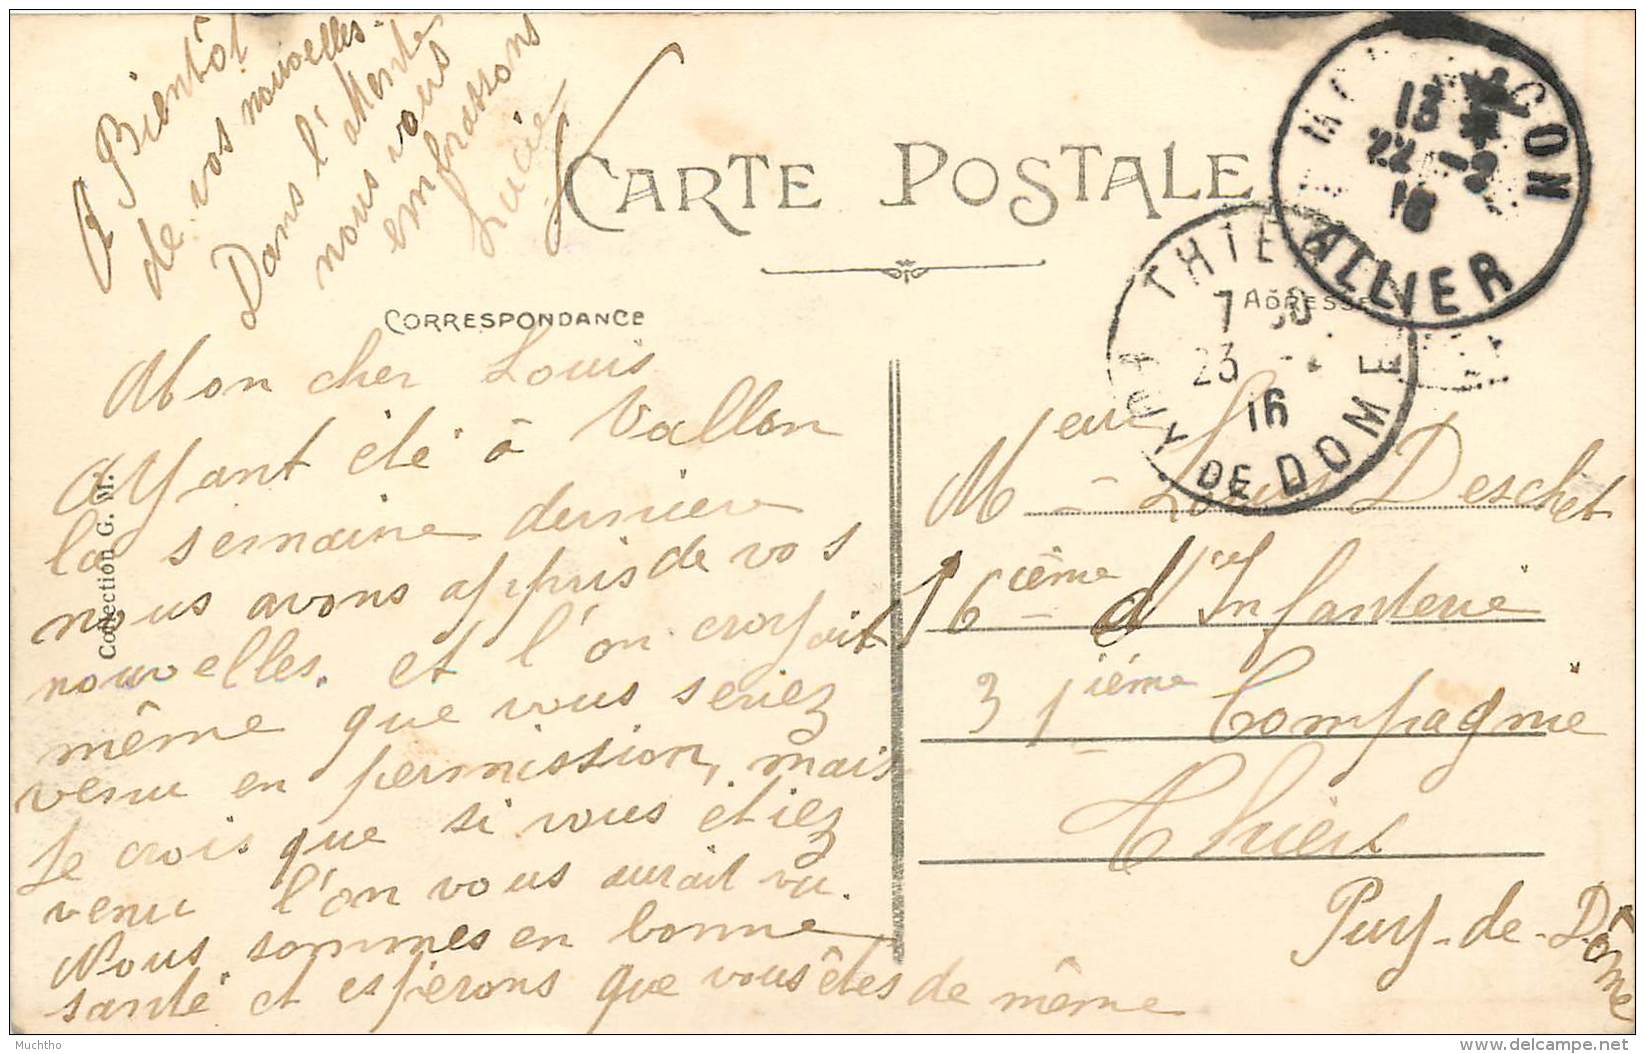 A Bientôt
de vos nouvelles.
Dans l'attente
nous vous
embrassons
Lucie
CARTE POSTALE
CORRESPONDANCE
ADRESSE
Mon cher Louis
Ayant été à Vallon
la semaine derniere
nous avons appris de vos
nouvelles. et l'on croyait
même que vous seriez
venu en permission, mais
Je crois que si vous étiez
venu l'on vous aurait vu.
Nous sommes en bonne
santé et espérons que vous êtes de même
Collection G. M.
CON
ALLIER
13
22 -2
16
THIE
PUY DE DOME
7 30
23 -
16
Meur Louis Deschet
16ième d'Infanterie
31ième Compagnie
Thiers
Puy-de-Dôme
Muchtho
www.delcampe.net